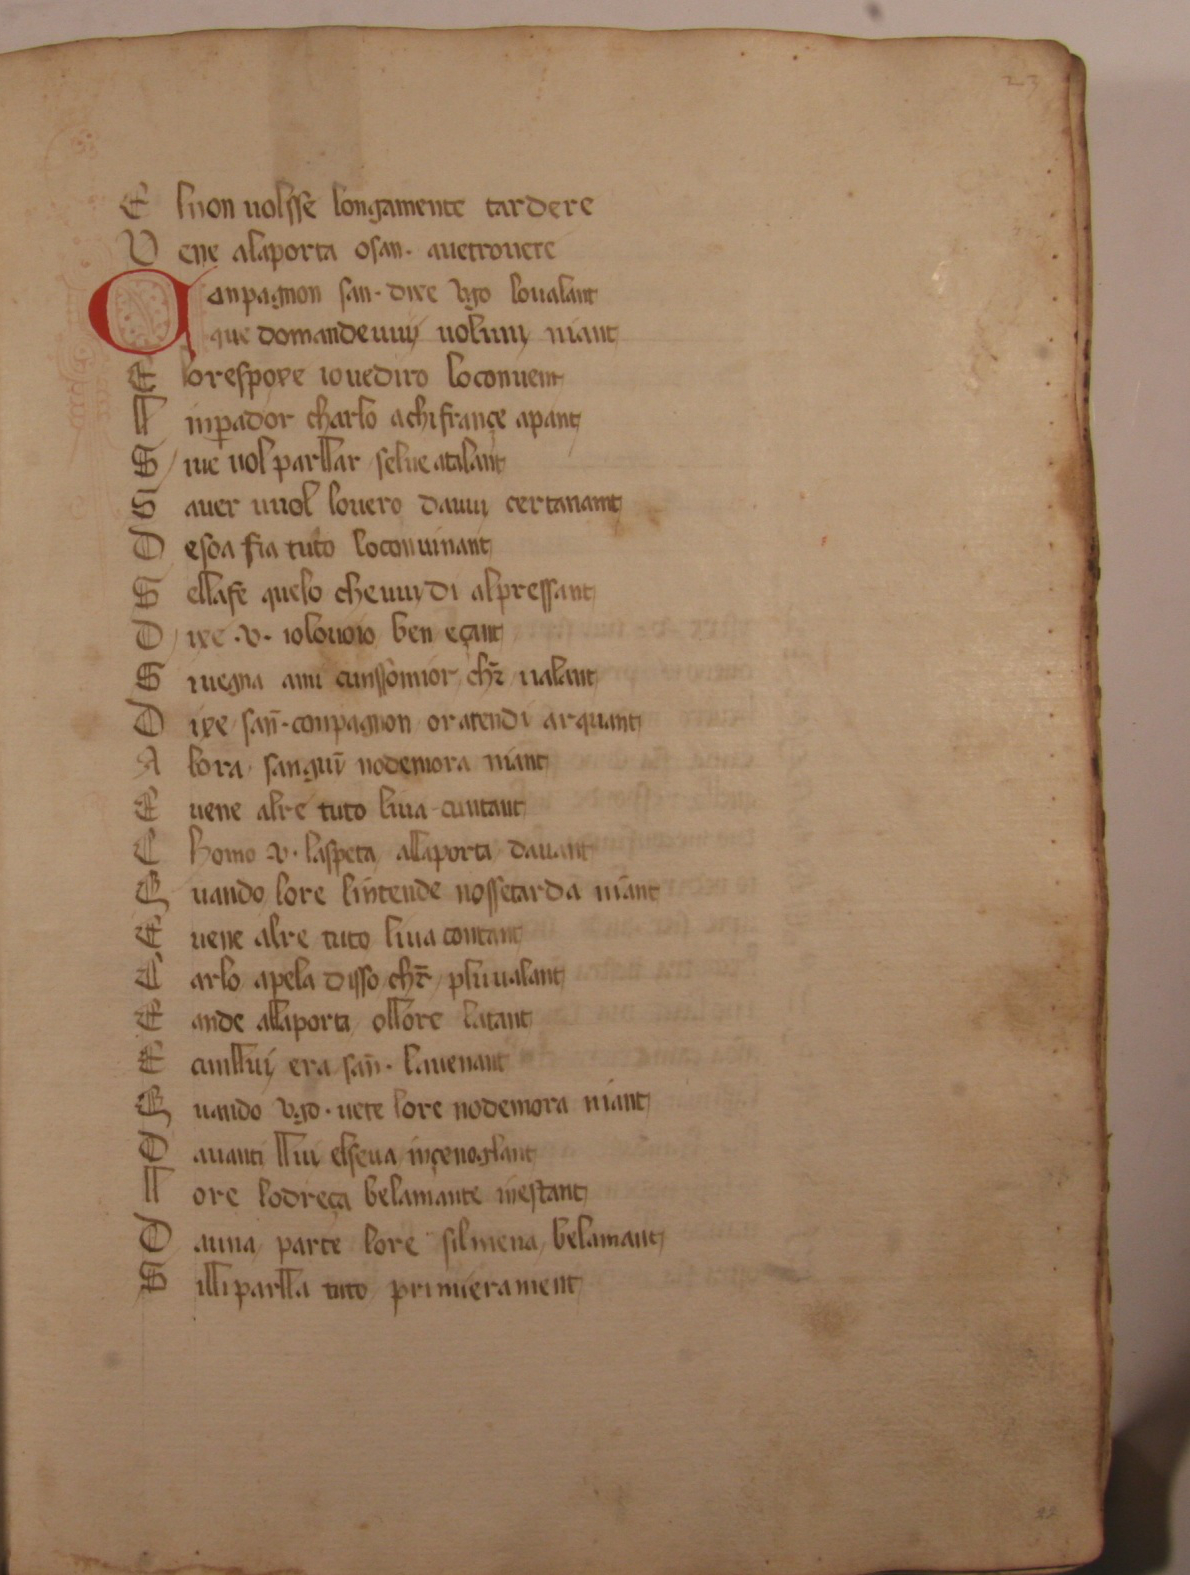 23
E luon uolsse longamente tardere
V ene alaporta osan· auetrouere
C anpagnon san· dixe vgo loualant
que domandeuuy uoluuy niant
E lorespoxe iouediro loconuent
I inpador charlo achifrançe apant
S iue uol parllar selueatalant
S auer uuol louero dauuy certanamt
D esoa fia tuto loconuinant
S ellafe quelo cheuuy di alpressant
D ixe ·v· iolouoio ben eçant
S iuegna amu cunssomior chr̄ ualant
D ixe san̄· conpagnon oratendi arquant
A lora sanguī nodemora niant
E uene alre tuto liua cuntant
C homo ·v· laspeta allaporta dauant
Q uando lore lintende nossetarda niant
E uene alre tuto liua contant
C arlo apela disso chr̄ pluualant
E ande allaporta ollore latant
E cunlluy era san̄· lauenant
Q uando vgo· uete lore nodemora niant
D auanti lluy elseua inçenoglant
L ore lodreça belamante inestant
D auna parte lore silmena belamant
S illi parlla tuto primierament